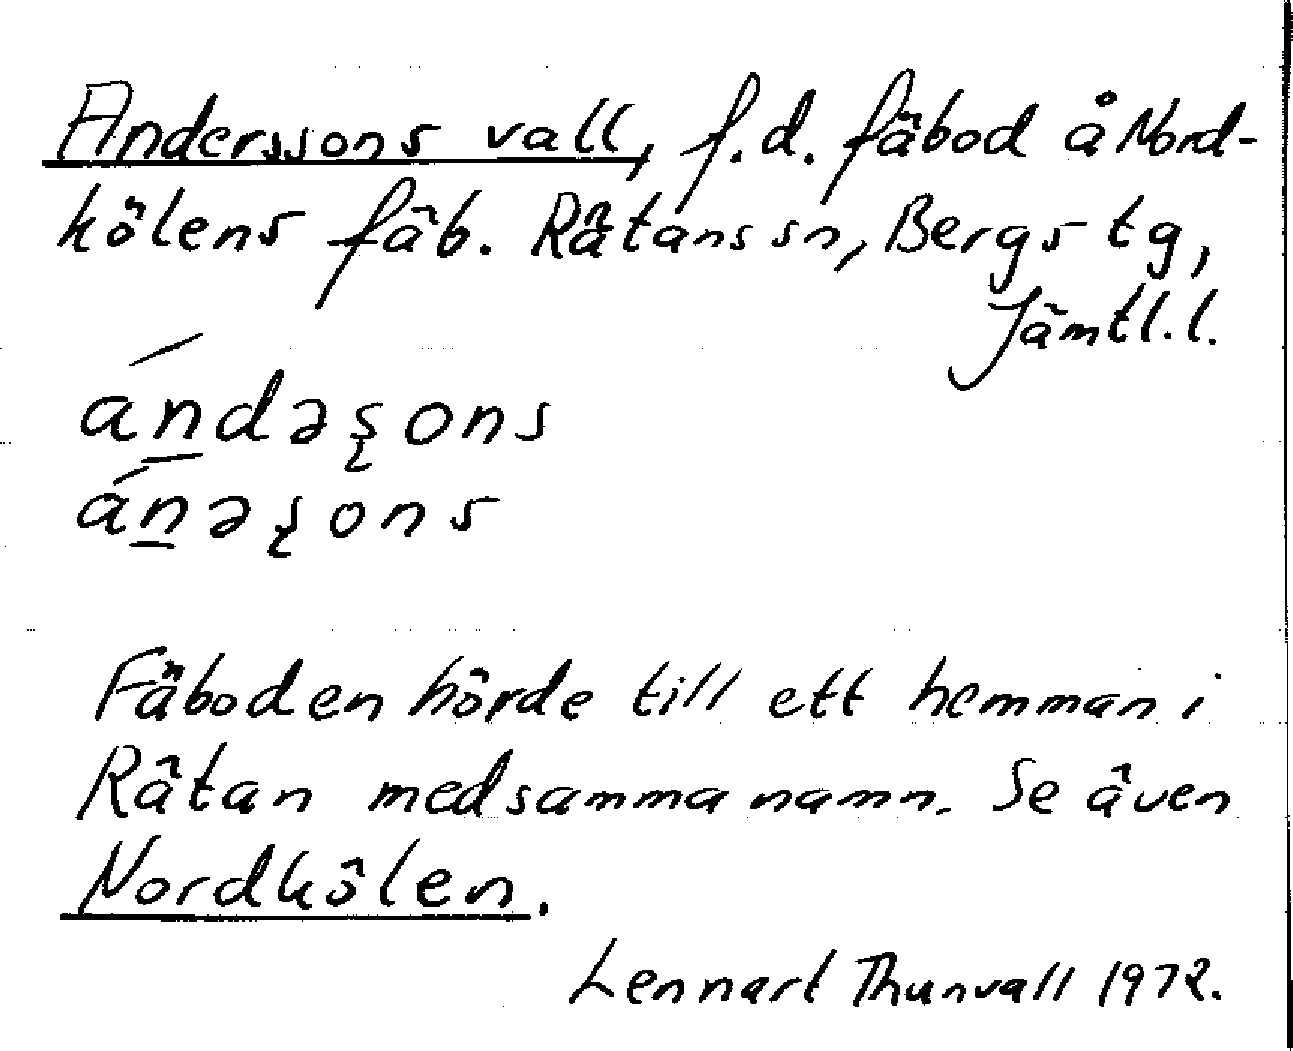 Anderssons vall, f.d. fäbod å Nord-
kölens fäb. Rätans sn, Bergs tg,
Jämtl.l.
án̲dəʂons
án̲əʂons
Fäboden hörde till ett hemman i
Rätan med samma namn. Se även
Nordkölen.
Lennart Thunvall 1972.